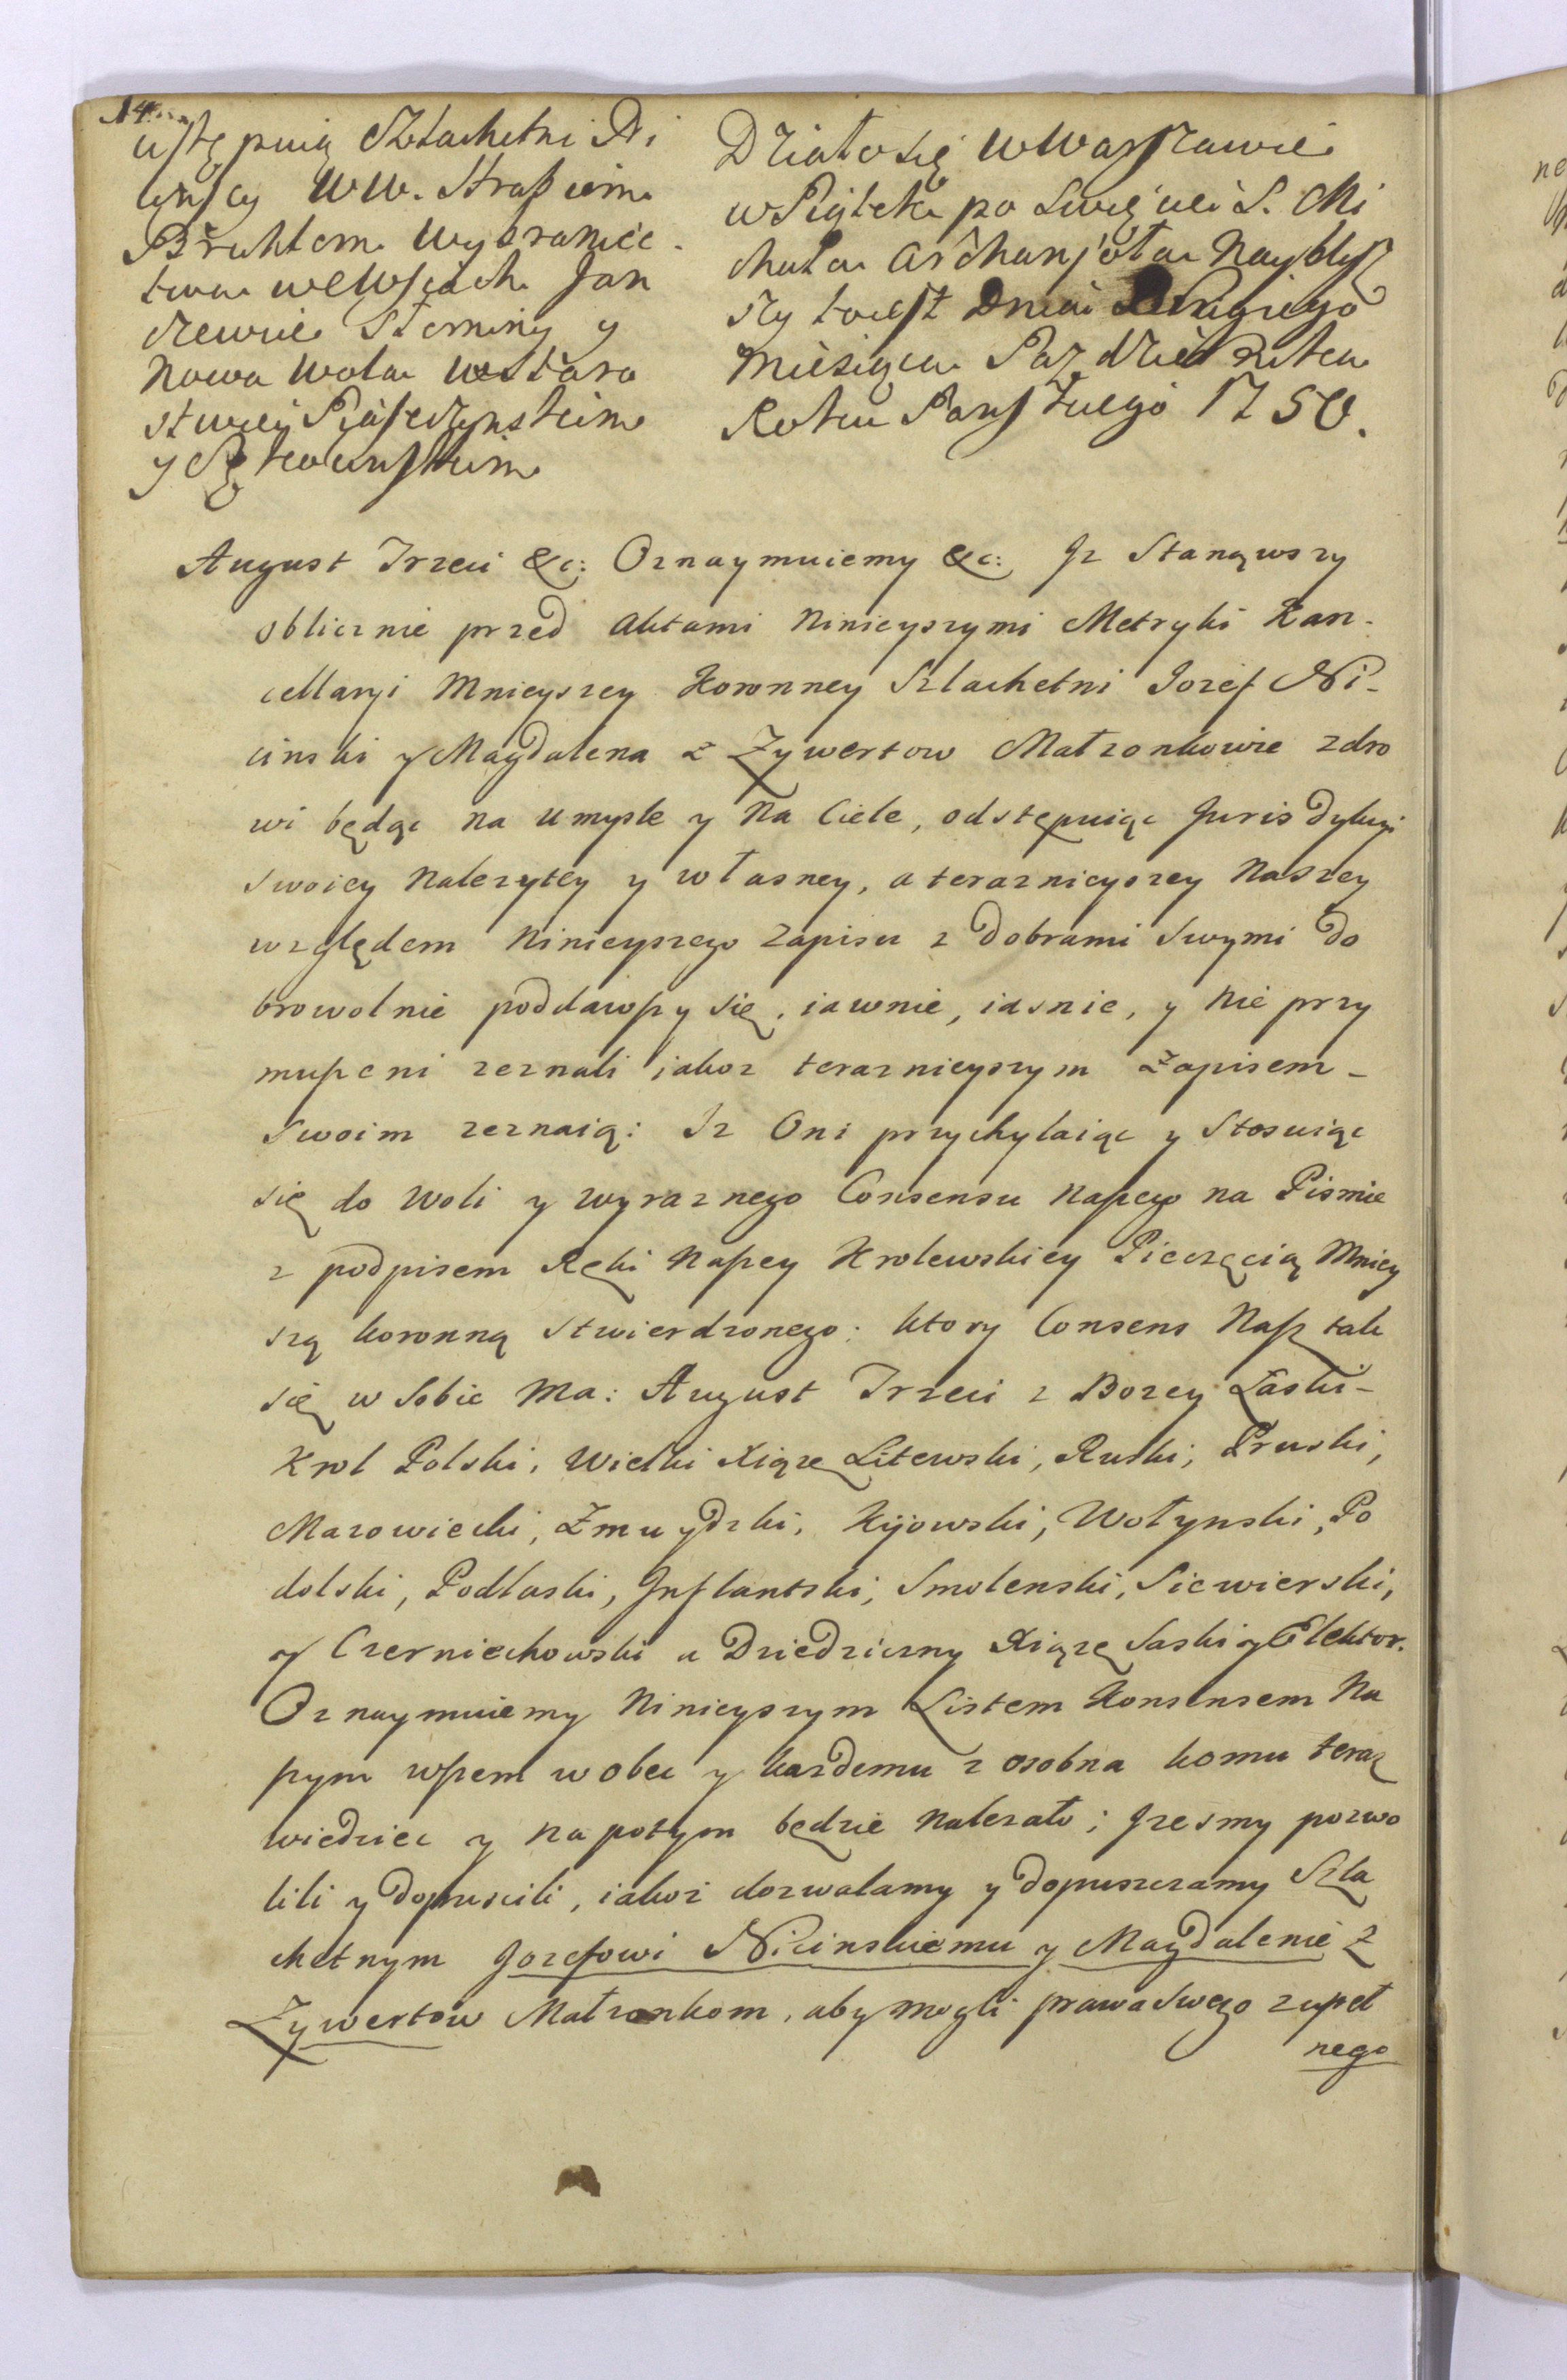 14.
ustępuią Szlachetni Ni
cynscy WW. Strasiom
Bruhlom Wybraniec-
twa we Wsiach Jan
czewie Słominy y
Nowa Wola w Staro
stwiey Piaseczynskim
y
Działo się w Warszawie
w Piątek po Święcie S. Mi
chała Archanjoła Nayblisz
szy to iest Dnia Drugiego
Miesiąca Pazdziernika
Roku Panskiego 1750.
August Trzeci &c: Oznaymuiemy &c: Jz Stanąwszy
oblicznie przed Aktami Ninieyszymi Metryki Kan-
cellaryi Mnieyszey Koronney Szlachetni Jozef Ni-
cinski y Magdalena z Zywertow Małzonkowie zdro
wi będąc na Umysle y na Ciele, odstępuiąc Jurisdykcyi
swoiey Nalezytey y własney, a teraznieyszey Naszey
względem Ninieyszego Zapisu z Dobrami Swymi Do
browolnie poddawszy się, iawnie, iasnie, y Nie przy
muszeni zeznali iakoz teraznieyszym Zapisem-
Swoim zeznaią: Iz Oni przychylaiąc y Stosuiąc
się do Woli y Wyraznego Consensu Naszego na Pismie
z podpisem Ręki Naszey Krolewskiey Pieczęcią Mniey
szą koronną Stwierdzonego: ktory Consens Nasz tak
się w Sobie Ma: August Trzeci z Bozey Łaski-
Krol Polski, Wielki Xiąze Litewski, Ruski, Pruski,
Mazowiecki, Zmuydzki, Kijowski, Wołynski, Po
dolski, Podlaski, Inflantski, Smolenski, Siewierski,
y Czerniechowski a Dziedziczny Xiąze Saski y Elektor.
Oznaymuiemy Ninieyszym Listem Konsensem Na
szym wszem wobec y kazdemu z osobna komu teraz
wiedziec y na potym będzie Nalezało; Jzesmy pozwo
lili y Dopuscili, iakoz dozwalamy y dopuszczamy Szla
chetnym Jozefowi Nicinskiemu y Magdalenie z
Zywertow Małzonkom, aby mogli prawa Swego zupeł
nego